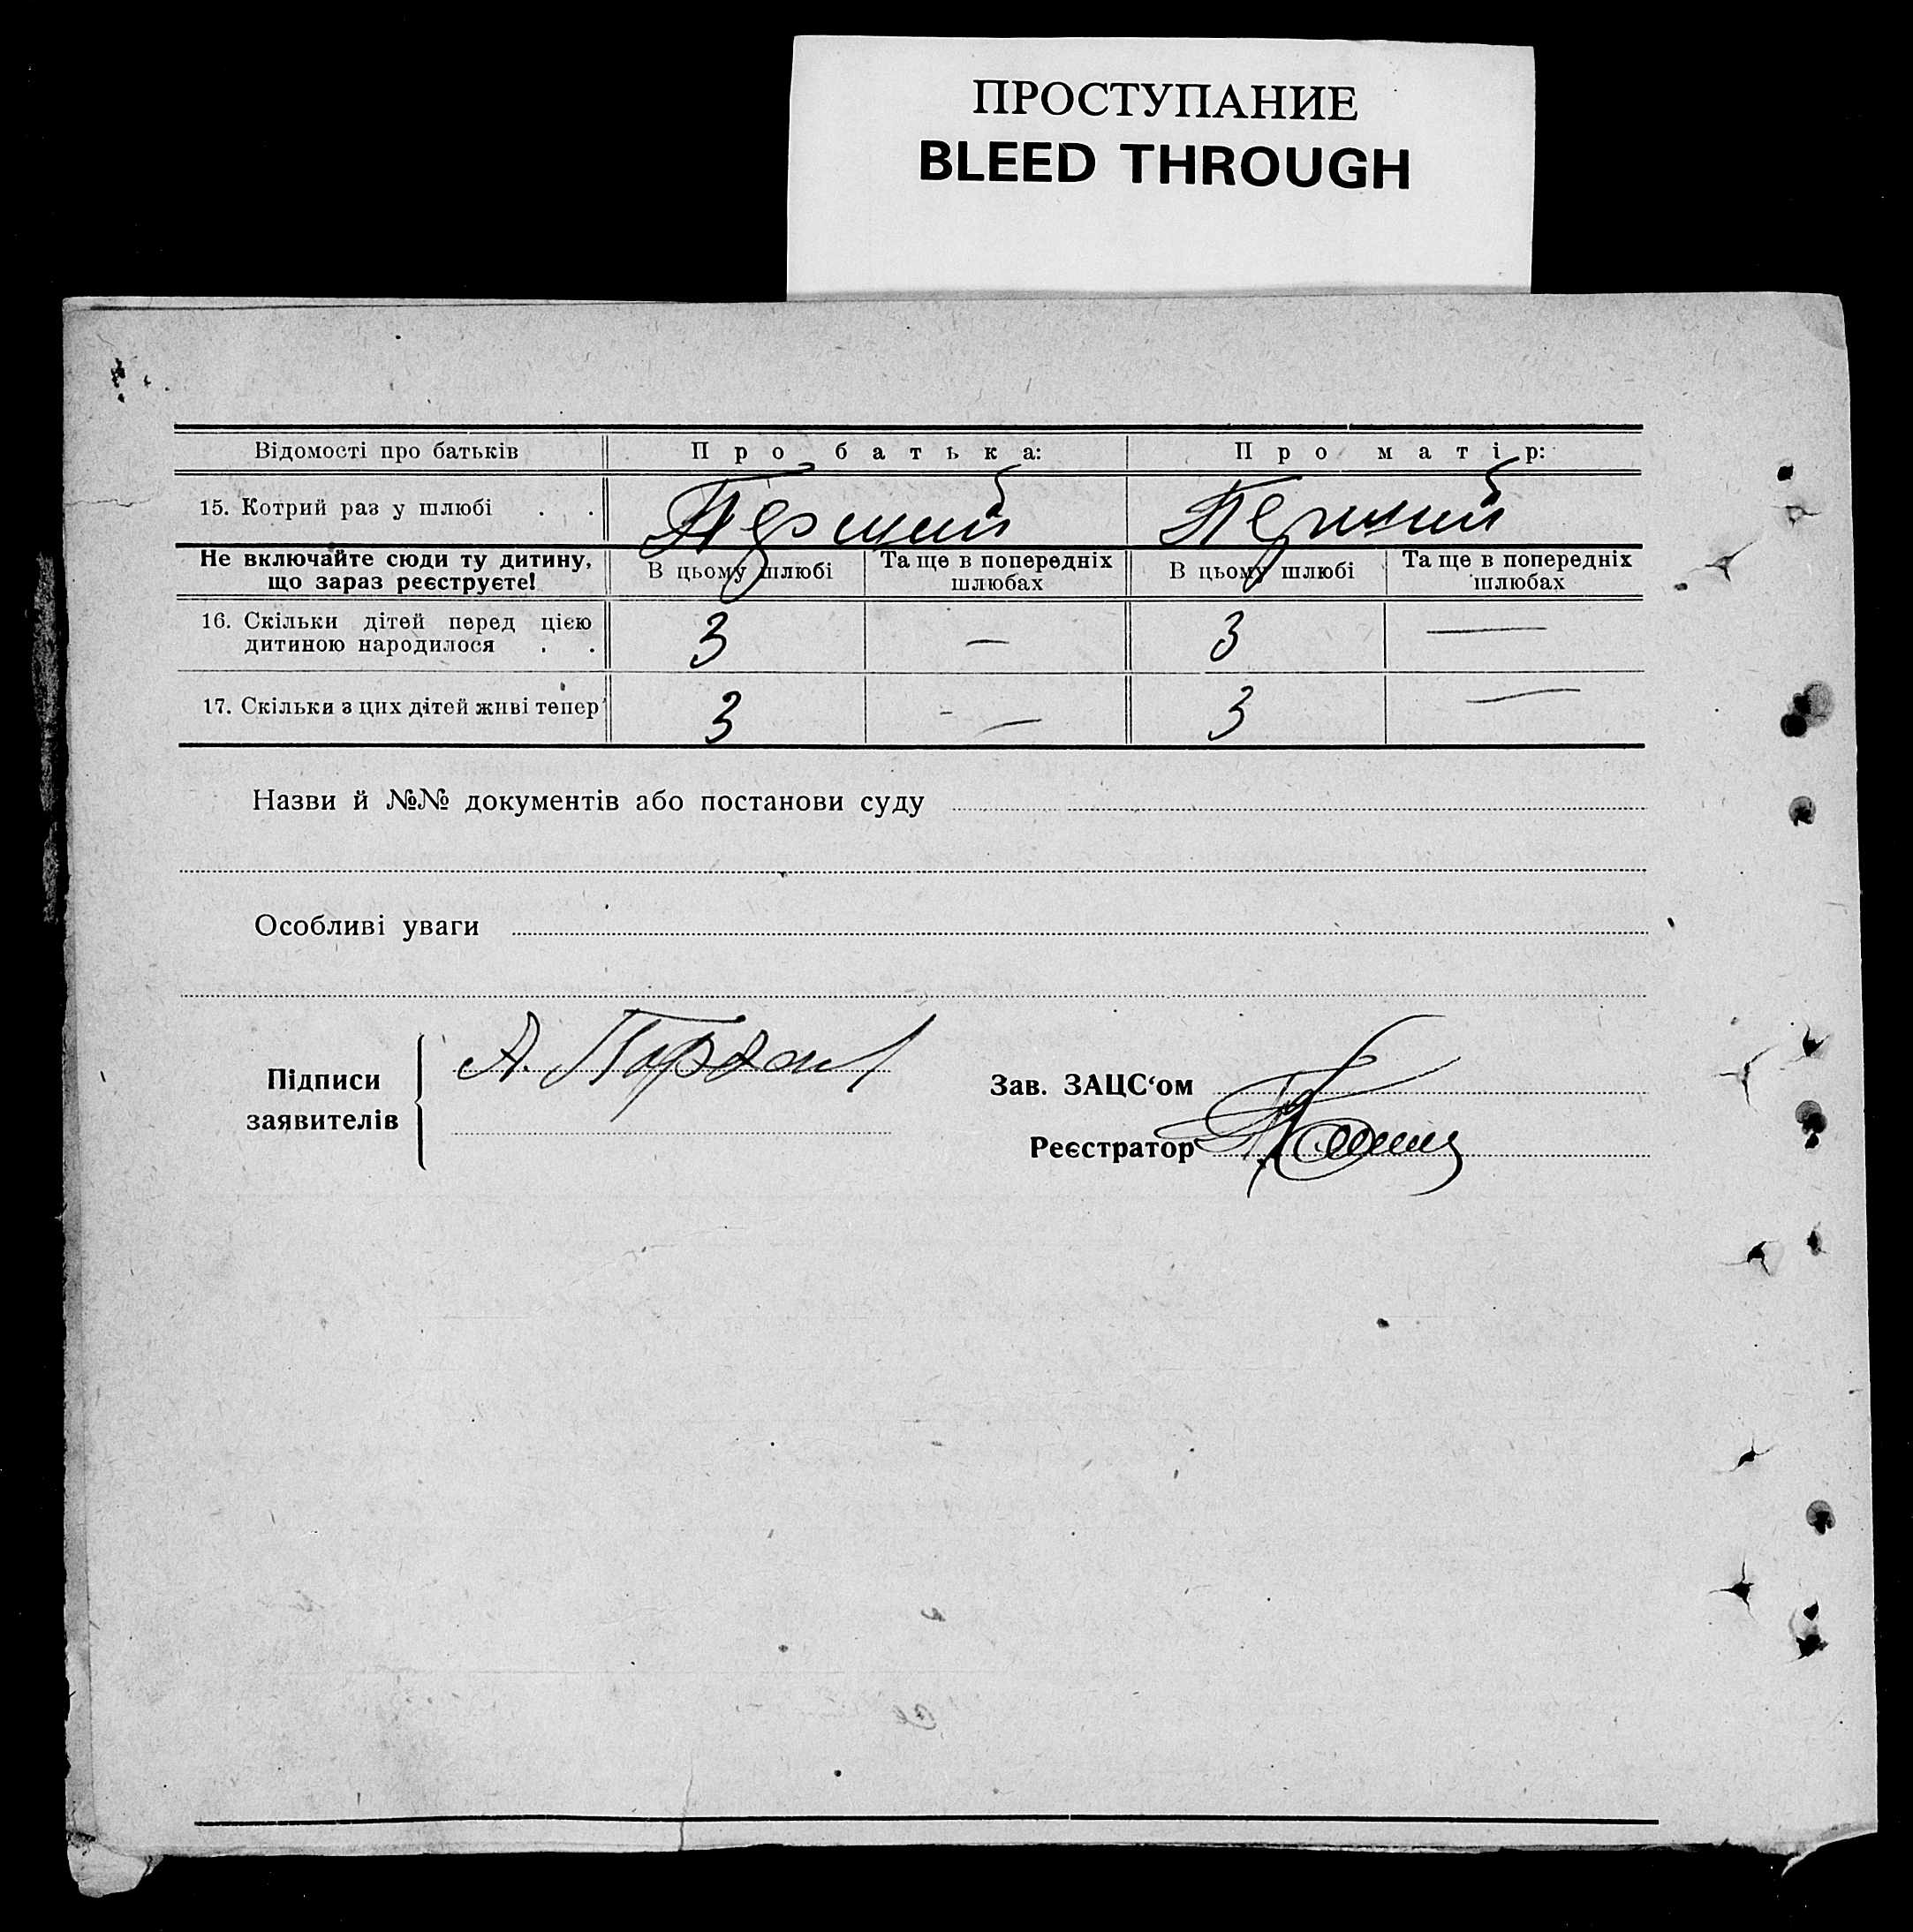 ПРОСТУПАНИЕ
BLEED THROUGH
Відомості про батьків Про батька: Про матір:
15. Котрий раз у шлюбі . . Перший Перший
Не включайте сюди ту дитину, що зараз реєструєте! В цьому шлюбі Та ще в попередніх шлюбах В цьому шлюбі Та ще в попередніх шлюбах
16. Скільки дітей перед цією дитиною народилося . . 3 — 3 —
17. Скільки з цих дітей живі тепер 3 — 3 —
Назви й №№ документів або постанови суду
Особливі уваги
Підписи заявителів А.
Зав. ЗАЦС‘ом
Реєстратор